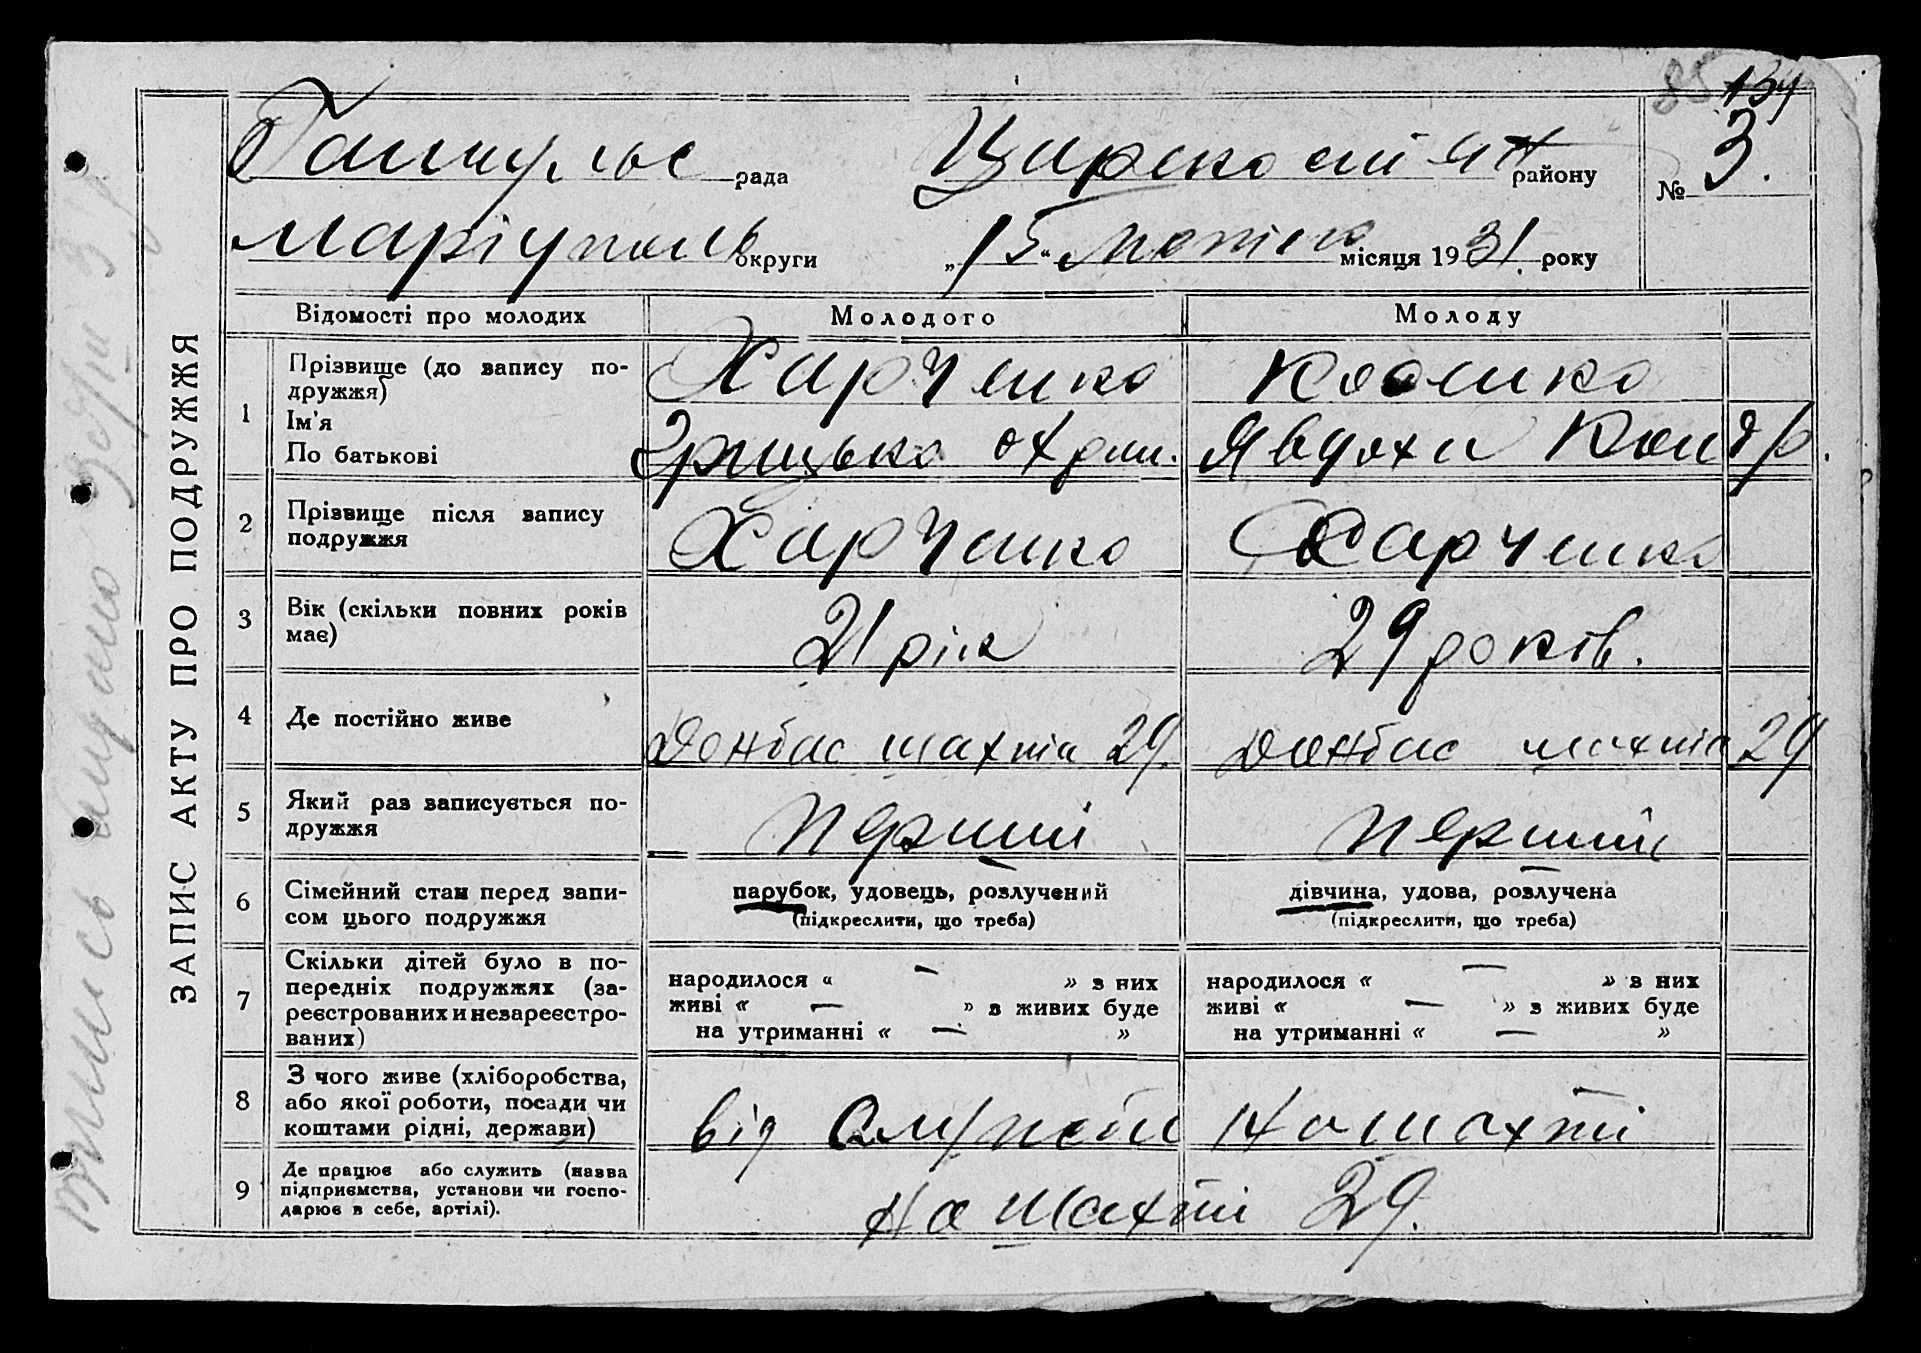 85 134
рада Царекостянт району № 3.
Маріуполь округи „15“ лютого місяця 1931 року
ЗАПИС АКТУ ПРО ПОДРУЖЖЯ
Відомості про молодих Молодого Молоду
1 Прізвище (до запису по-
дружжя) Харченко
Ім'я
По батькові Грицько Явдоха Кондр.
2 Прізвище після запису
подружжя Харченко Харченко
3 Вік (скільки повних років
має) 21 рік 29 років.
4 Де постійно живе Донбас шахта 29. Донбас шахта 29
5 Який раз записується по-
дружжя перший перший
6 Сімейний стан перед запи-
сом цього подружжя
парубок, удовець, розлучений
(підкреслити, що треба)
дівчина, удова, розлучена
(підкреслити, що треба)
7 Скільки дітей було в по-
передніх подружжях (за-
реєстрованих и незареєстро-
ваних)
народилося « — » з них
живі « — » з живих буде
на утриманні « — »
народилося « — » з них
живі « — » з живих буде
на утриманні « — »
8 З чого живе (хліборобства,
або якої роботи, посади чи
коштами рідні, держави)
від служби на шахті
9 Де працює або служить (назва
підприємства, установи чи госпо-
дарює в себе, артілі).
на шахті 29.